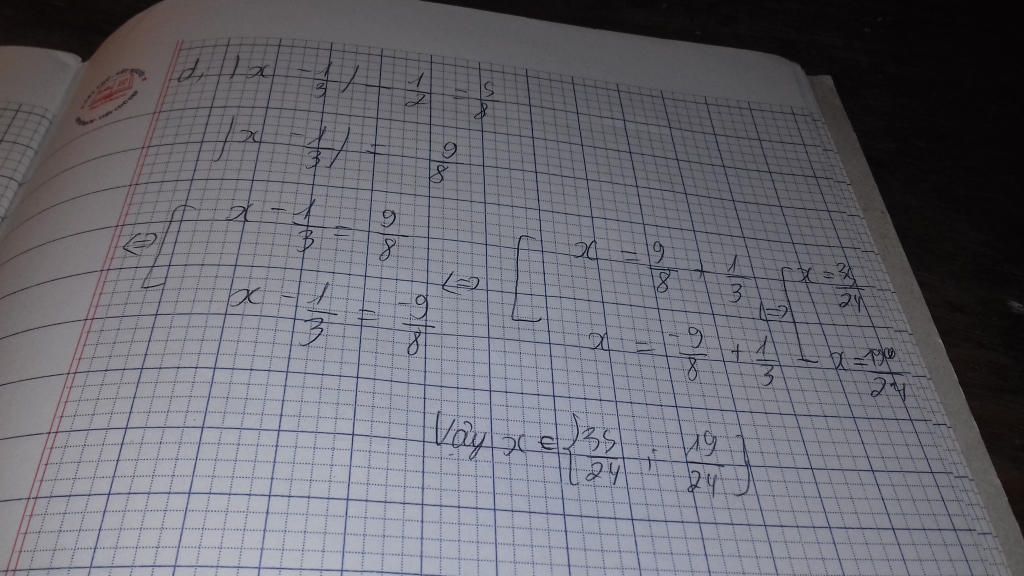 d, |x - 1/3| - 1/2 = 5/8
|x - 1/3| = 9/8
⇔ [ x - 1/3 = 9/8
x - 1/3 = -9/8
⇔ [ x = 9/8 + 1/3
x = -9/8 + 1/3
⇔ [ x = 35/24
x = -19/24
Vậy x = {35/24 ; 19/24}